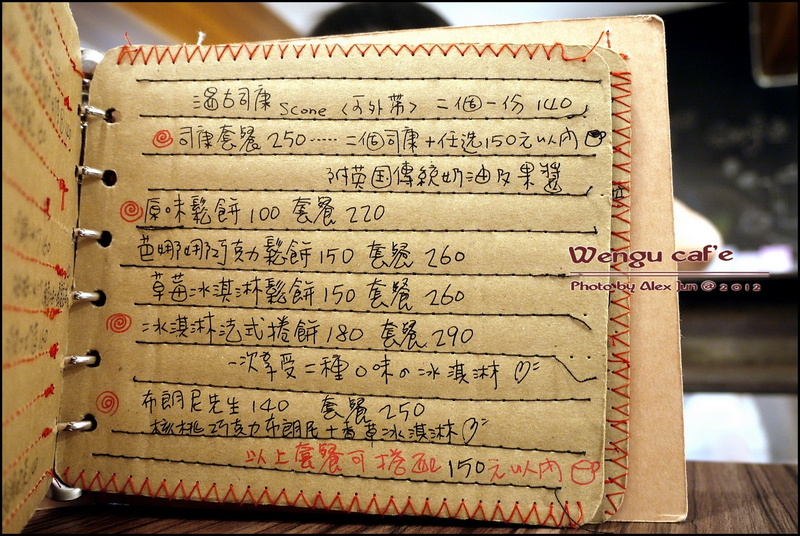 溫古司康 scone (可外帶) 二個一份 140
司康套餐 250‥‥‥ 二個司康+任选150元以內
附英国傳統奶油及果醬
原味鬆餅 100 套餐 220
芭娜娜巧克力鬆餅 150 套餐 260
草莓冰淇淋鬆餅 150 套餐 260
冰淇淋法式捲餅 180 套餐 290
一次享受二種口味の冰淇淋
布朗尼先生 140 套餐 250
核桃巧克力布朗尼+香草冰淇淋
以上套餐可搭配 150元以內
Wengu caf'e
Photo by Alex Jun @ 2012